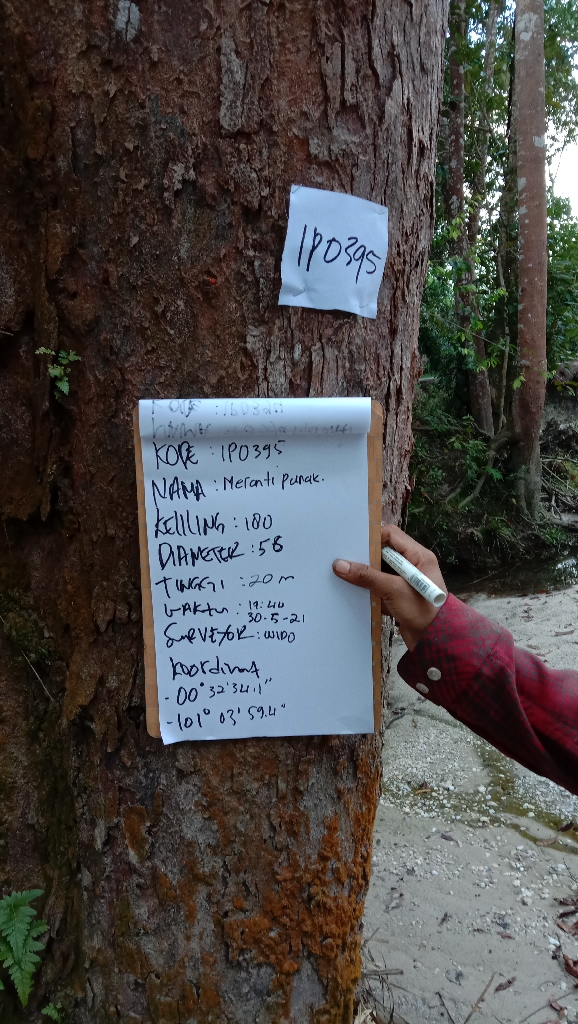 1P0395
KODE : 1P0395
NAMA : Meranti punak.
KELILING : 180
DIAMETER : 58
TINGGI : 20 m
WAKTU : 17:40
30-5-21
SURVEYOR : WIDO
Koordinat
-00° 32'34.1"
-101° 03' 59.4"